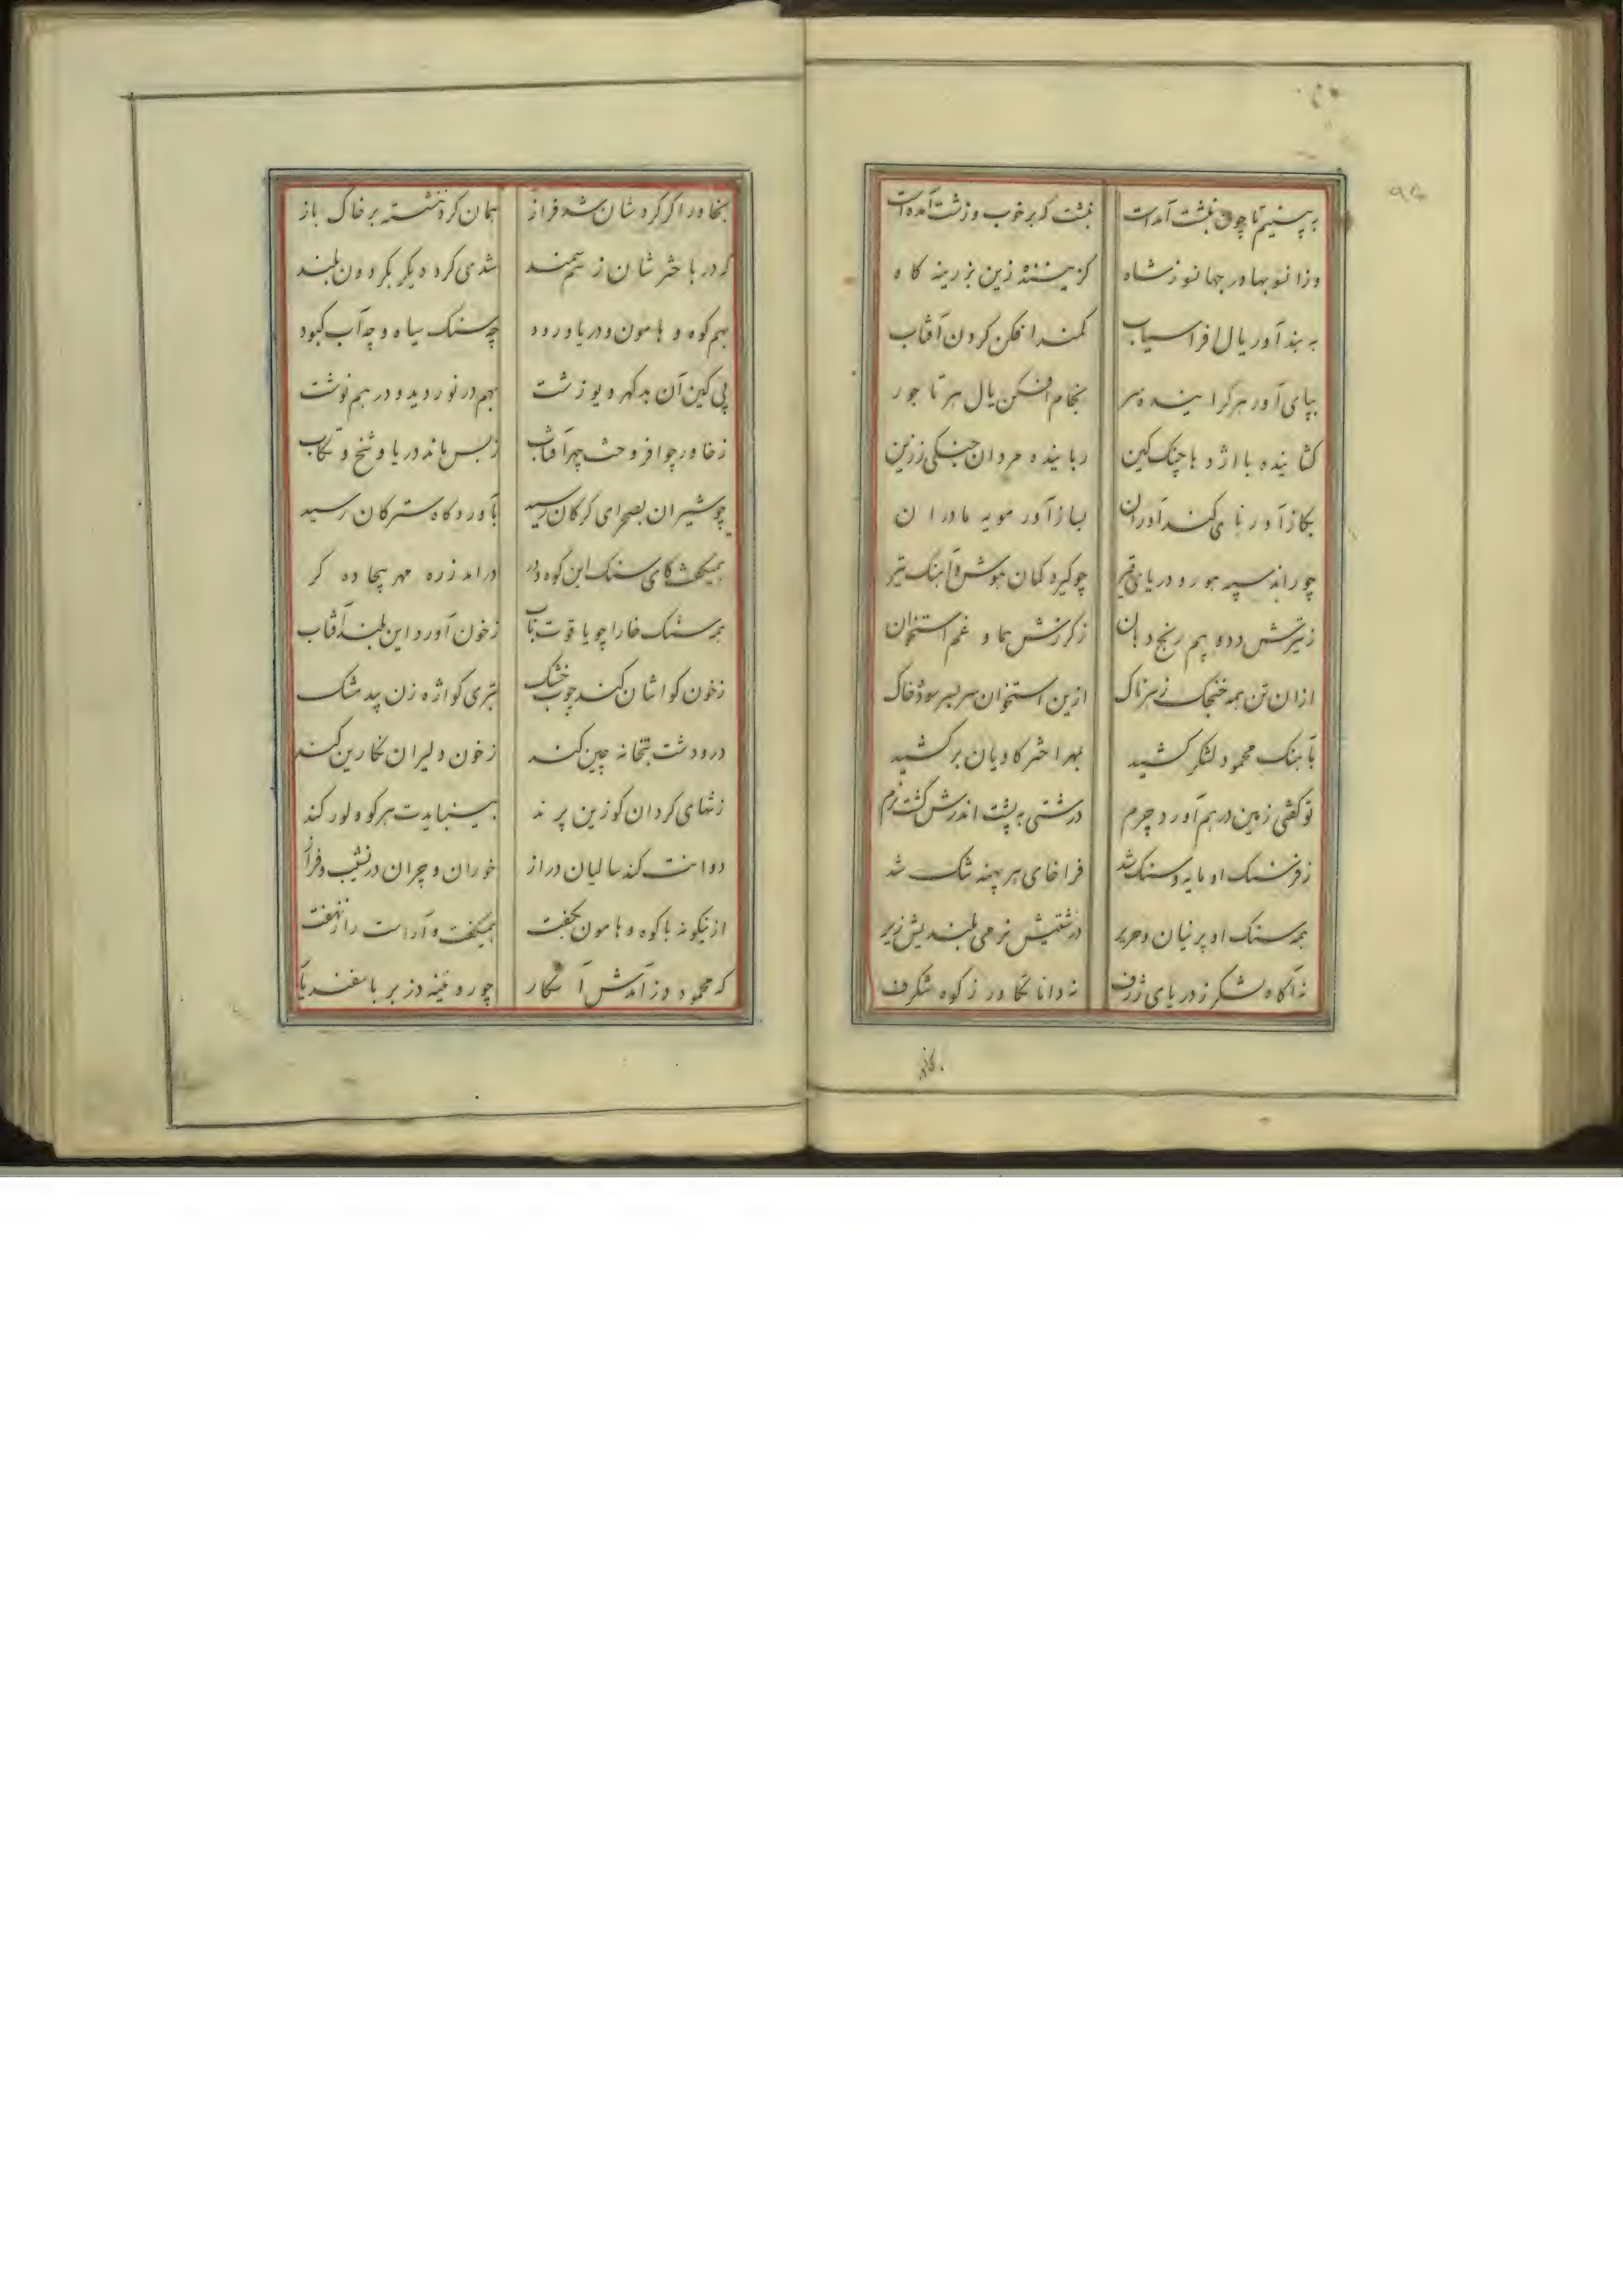 ۹۴
به بینیم تا چون نبشت آمدست نبشت که بر خوب و زشت آمدست
وزانو بهاور جهانوز شاه گزیننده زین بزرینه کاه
به بند آور یال افراسیاب کمند افکن کردن آفتاب
بپای آور هر گراینده سر بخام افکن یال هر تاجور
کشاینده با اژدها چنک کین رباینده مردان جنکی ززین
بکاز آور نای کند آوران بساز آور مویه مادران
چو راند سپه هور و دریای قیر چو کیرد کمان هوش و آهنک تیر
ز تیرش دد و یم رنج دهان ز کرزش هما و غم استخوان
ازان تن همه خنجاک زهرناک ازین استخوان سر بسر سوده خاک
بآهنک محمود لشکر کشید بهرا ختر کاویان بر کشید
تو کفتی زمین در هم آورد چرم درشتی به پشت اندرش کشت نرم
ز فرسنک او مایه و سنک شد فراخای هر پهنه تنک شد
همه سنک او پرنیان و حریر درشتیش نرمی بلندیش زیر
نه آکاه لشکر ز دریای ژرف نه دانا تکاور ز کوه شکرف
بخاور اکر کردشان شد فراز همان کرد ننشسته بر خاک باز
که در باختر شان ز سم سمند شدی کرد دیکر بکردون بلند
بهم کوه و هامون و دریا و رود چه سنک سیاه و چه آب کبود
پی کین آن بد کهر دیو زشت بهم در نوردید و در هم نوشت
ز خاور چو افروخت چهر آفتاب ز پس ماند دریا و شخ و تکاب
چو شیران بصحرای کرکان رسید بآوردکاه سترکان رسید
همیکفت کای سنک این کوه و در در امد زره مهر بیجاده کر
همه سنک خارا چو یاقوت ناب ز خون آورد این بلند آفتاب
ز خون کواشان کند چوب خشک بتری کواژه زن بید مشک
در و دشت بتخانه چین کند ز خون دلیران نکارین کند
ز تنهای کردان کوزین پرند ببینبایدت هر کو و لور کند
دوانت کند سالیان دراز خوران و چران در نشیب و فراز
ازینکونه با کوه و هامون بکفت همیکفت و آراست راز نهفت
که محمود دز آمدش آشکار چو روئینه دز بر باسفندیار